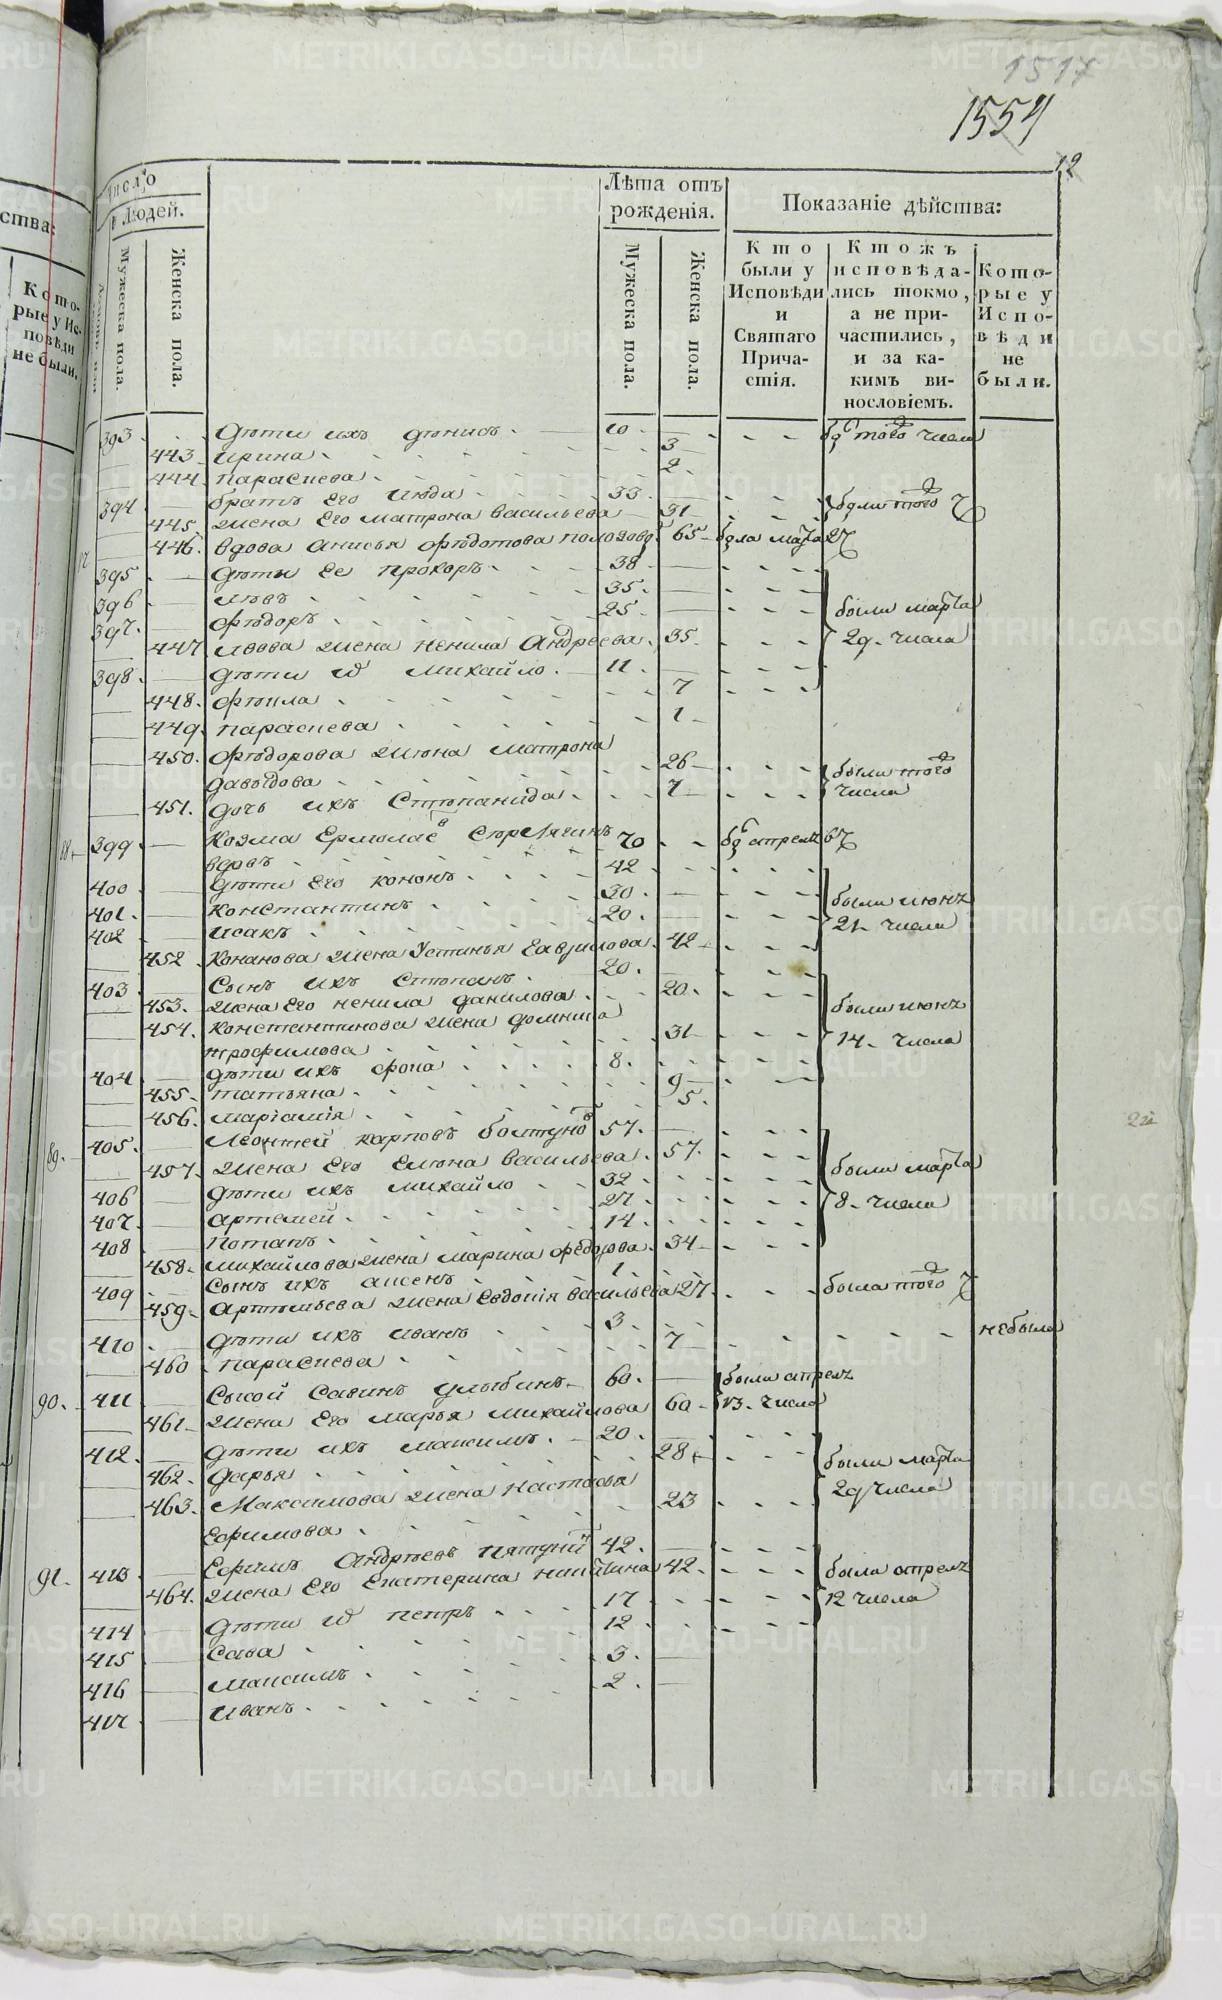 1517
1554
12
Число
Людей.
Мужеска пола.
Женска пола.
Лѣта отъ рожденія.
Мужеска пола.
Женска пола.
Показаніе дѣйства:
Кто были у Исповѣди и Святаго Причастія.
Ктожъ исповѣдались токмо, а не причастились, и за какимъ винословіемъ.
Которые у Исповѣди не были.
ства:
Которые у Исповѣди не были.
393. дѣти ихъ дѣнисъ 10 того числа
443. ирина 3
444. парасиева 2
394 братъ его июда 33 были того ч
445. жена его матрона васильева 31
446. вдова анисья фѣдотова 65 марта 27
395 дѣти ее прохоръ 38
396 лѣвъ 35 были марта
397. фѣдоръ 25 29. числа
447 лвова жена ненила Андреева 35
398 дѣти михайло 11
448. фѣкла 7
449. парасиева 1
450. Фѣдорова жена матрона
давыдова 26 были того
451. дочь ихъ Стѣпанида 7 числа
88 399 Козма Ермолаев 70 апреля 6
400 дѣти его кононъ 42
401. константинъ 30 были июня
402 исакъ 20 21 числа
452 Конанова жена Устинья гаврилова 42
403 Сынъ ихъ Стѣпанъ 20
453. жена его ненила данилова 20 были июня
454. Константинова жена домника
трофимова 31 14. числа
404 дѣти ихъ фока 8
455. татьяна 9
456. 5
89. 405. Леонтей карповъ болтунов 57
457. жена его елѣна васильева 57 были марта
406 дѣти ихъ михайло 32 8. числа
407. артемей 27
408 потапъ 14
458. михайлова жена марина федорова 34
409 Сынъ ихъ аксенъ 1
459. артѣмьева жена Евдокия васильева 27 была того ч
410 дѣти ихъ иванъ 3
460 парасиева 7 небыла
90. 411 Сысой Савинъ улыбинъ 60 были апреля
461. жена его марья михайлова 60 13. числа
412. дѣти ихъ максимъ 20
462. дарья 28 были марта
463. Максимова жена настасья
Ефимова 23 29 числа
91. 413 Ефимъ Андрѣевъ 42
464. жена его Екатерина никитина 42 была апреля
414 дѣти петръ 17 12 числа
415 Сава 12
416 максимъ 3
417 иванъ 2
METRIKI.GASO-URAL.RU